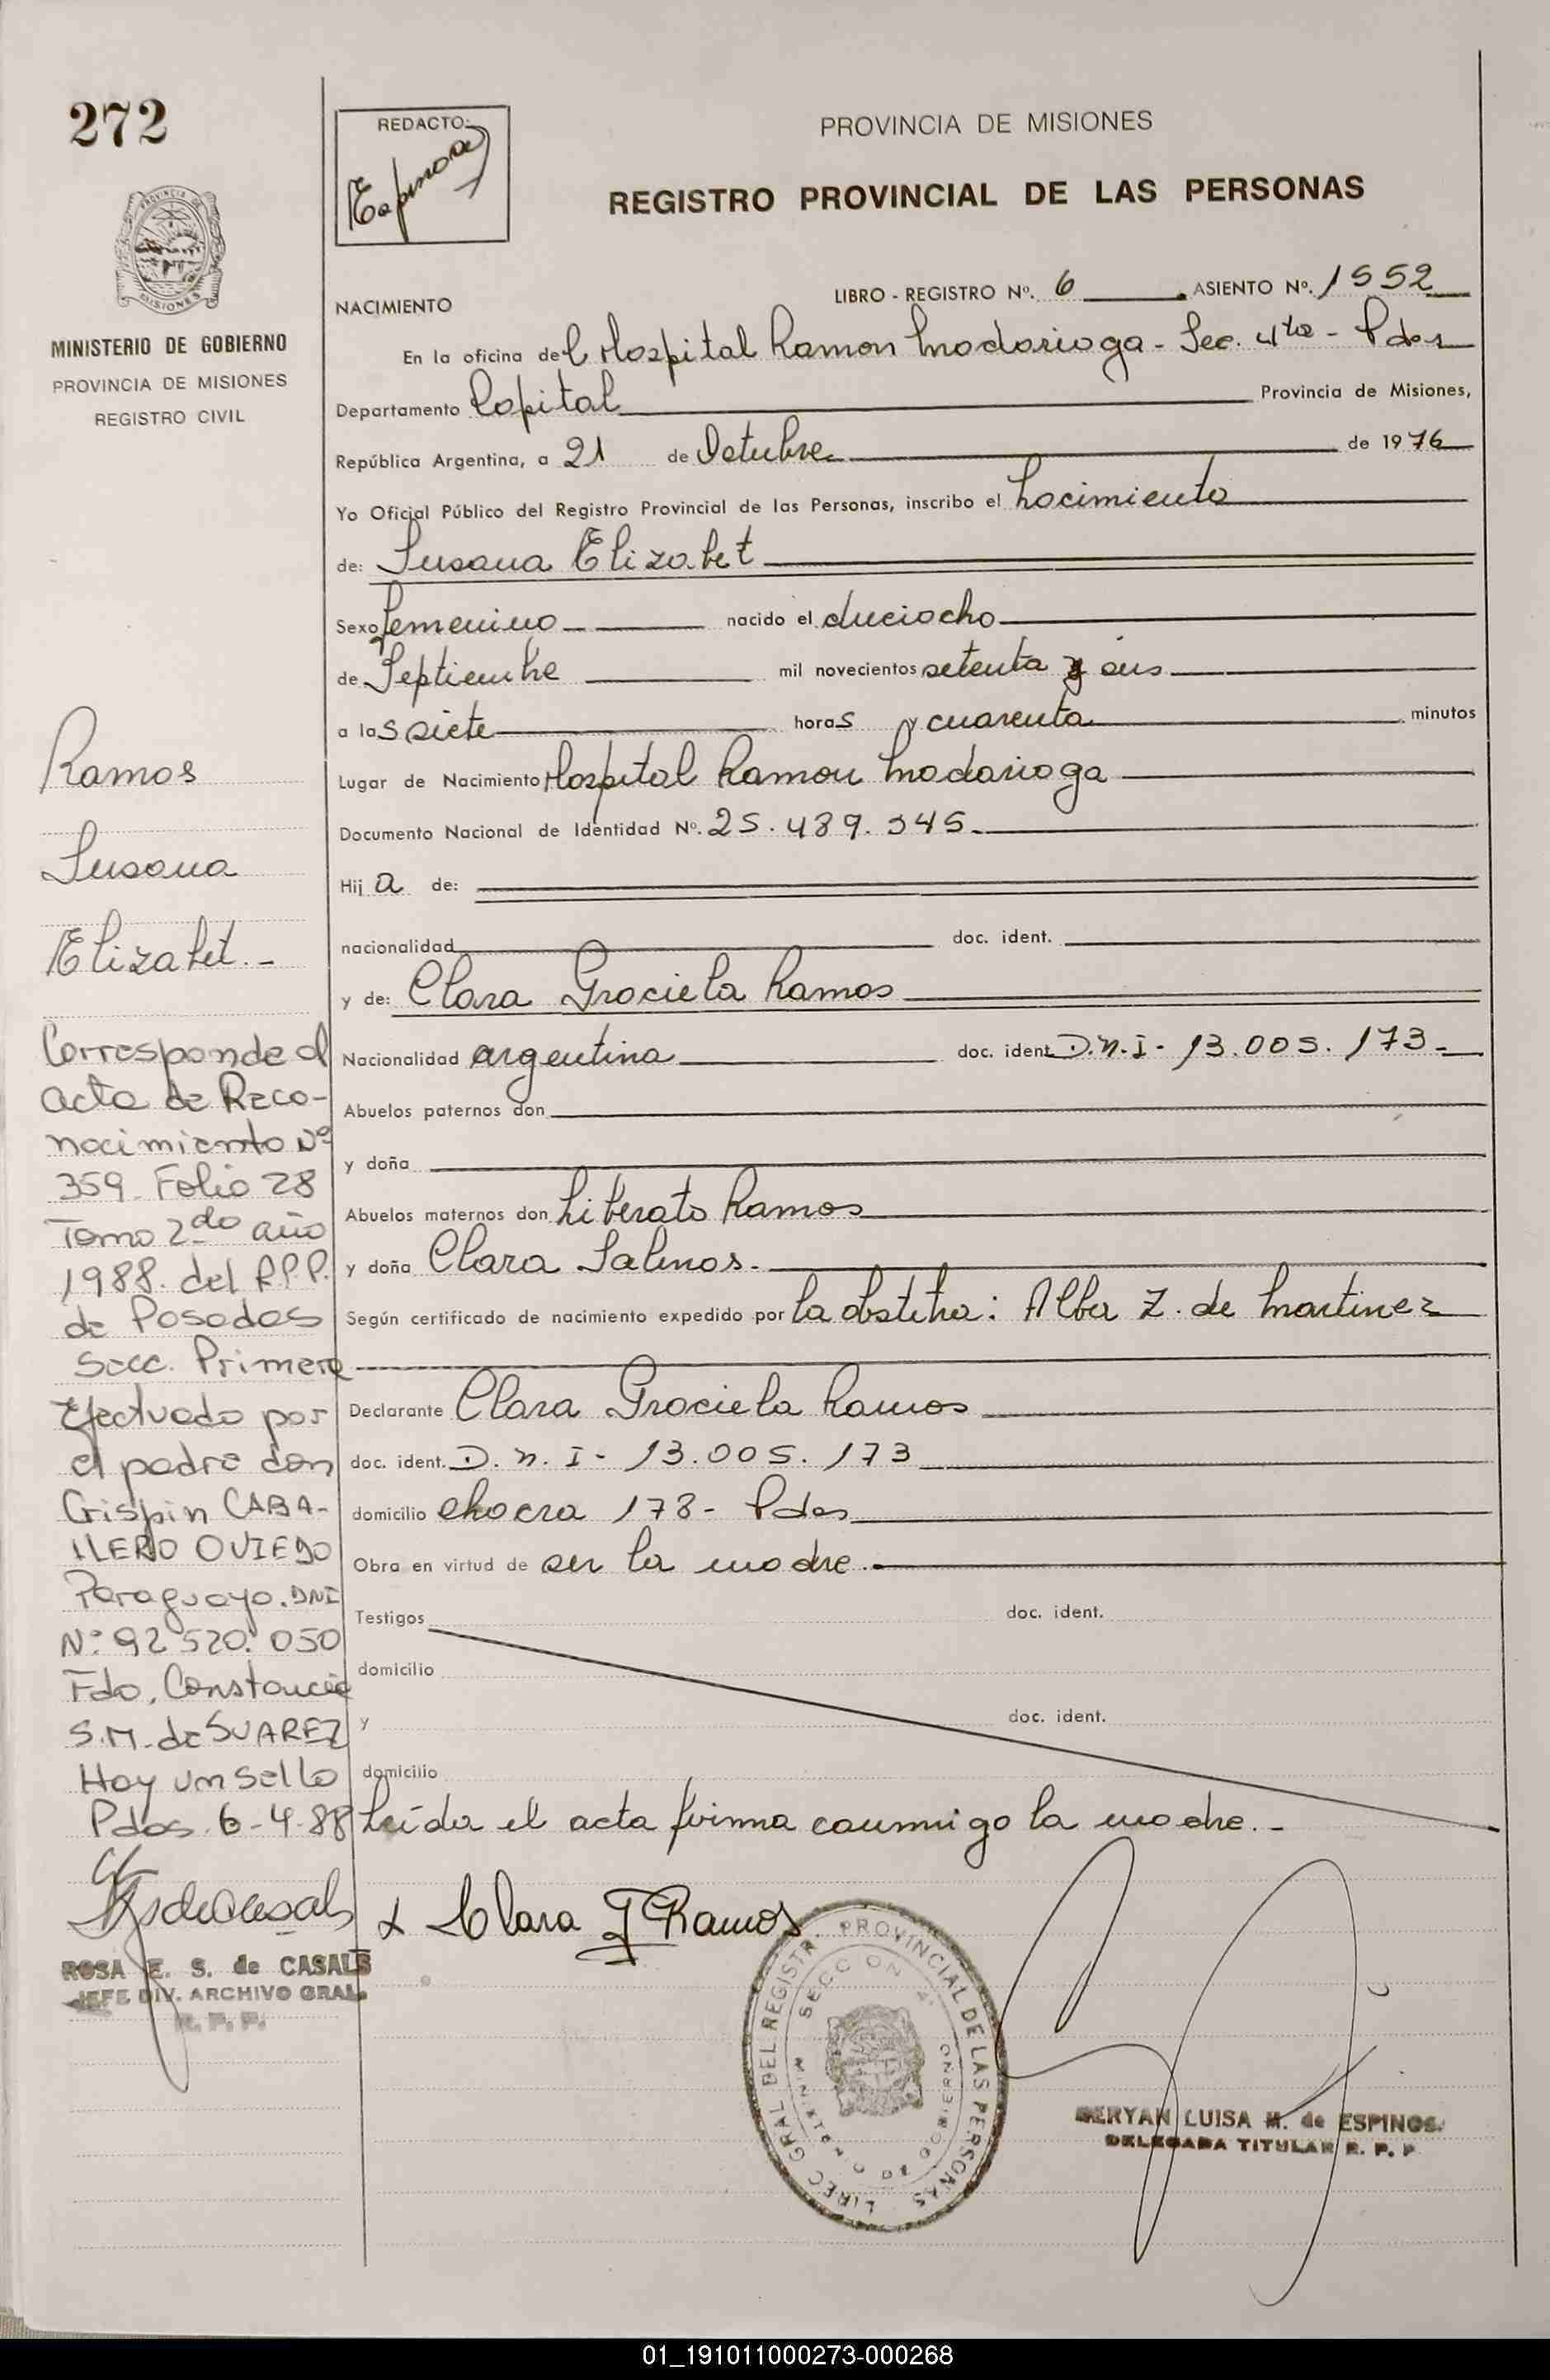 272
REDACTO:
Espinosa
PROVINCIA DE MISIONES
REGISTRO PROVINCIAL DE LAS PERSONAS
MISIONES
MINISTERIO DE GOBIERNO
PROVINCIA DE MISIONES
REGISTRO CIVIL
NACIMIENTO
LIBRO - REGISTRO Nº. 6 ASIENTO Nº. 1552
En la oficina del Hospital Ramon Madariaga - Sec. 4ta - Pdas
Departamento Capital Provincia de Misiones,
República Argentina, a 21 de Octubre de 1976
Yo Oficial Público del Registro Provincial de las Personas, inscribo el nacimiento
de: Susana Elizabet
Sexo femenino nacido el dieciocho
de Septiembre mil novecientos setenta y seis
a las siete horas y cuarenta minutos
Lugar de Nacimiento Hospital Ramon Madariaga
Documento Nacional de Identidad Nº. 25.489.345.
Hija de:
nacionalidad doc. ident.
y de: Clara Graciela Ramos
Nacionalidad argentina doc. ident. D.N.I - 13.005.173-
Abuelos paternos don
y doña
Abuelos maternos don Liberato Ramos
y doña Clara Salinas.
Según certificado de nacimiento expedido por la obstetra: Alba Z. de Martinez
Declarante Clara Graciela Ramos
doc. ident. D.N.I - 13.005.173
domicilio chacra 178 - Pdas
Obra en virtud de ser la madre.
Testigos doc. ident.
domicilio
y doc. ident.
domicilio
Leída el acta firma conmigo la madre.-
x Clara G Ramos
Ramos
Susana
Elizabet.-
Corresponde al
acta de Reco-
nocimiento Nº
359. Folio 28
Tomo 2do año
1988. del R.P.P.
de Posadas
Secc. Primera
Efectuado por
el padre don
Crispin CABA-
LLERO OVIEDO
Paraguayo. DNI
Nº 92520.050
Fdo. Constancia
S.M. de SUAREZ
Hay un sello
Pdas. 6-4-88
ROSA E. S. de CASALS
JEFE DIV. ARCHIVO GRAL.
R. P. P.
DIREC GRAL DEL REGISTR. PROVINCIAL DE LAS PERSONAS
SECCION 4ª
MINISTERIO DE GOBIERNO
MERYAN LUISA M. de ESPINOSA
DELEGADA TITULAR R. P. P
01_191011000273-000268